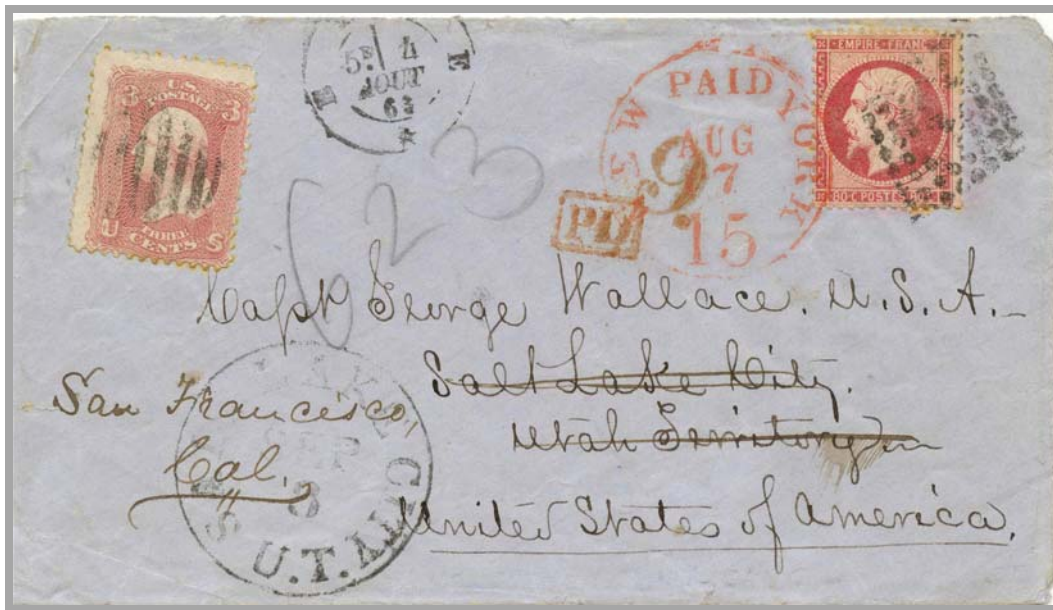 U.S.
POSTAGE
3 3
U THREE S
CENTS
5E 4 E
AOUT
63
623
NEW PAID YORK
AUG
17
15
9
PD
EMPIRE FRANC
80 C POSTES 80 C
Capt George Wallace. U. S. A.
Salt Lake City.
Utah Territory
United States of America.
San Francisco,
Cal.
SALT LAKE CITY
SEP
8
U.T.